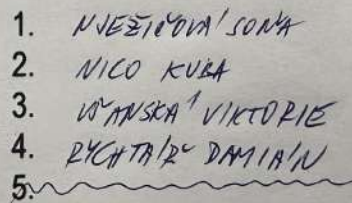 1. NJEŽIČOVÁ SOŇA
2. NICO KUBA
3. VŠANSKÁ VIKTORIE
4. RYCHTAŘ DAMIÁN
5.